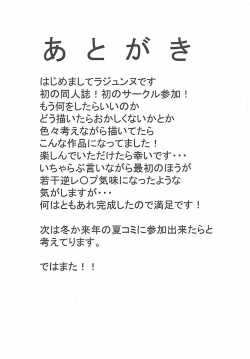 あとがき
はじめましてラジュンヌです
初の同人誌！初のサークル参加！
もう何をしたらいいのか
どう描いたらおかしくないかとか
色々考えながら描いてたら
こんな作品になってました！
楽しんでいただけたら幸いです・・・
いちゃらぶ言いながら最初のほうが
若干逆レ〇プ気味になったような
気がしますが・・・
何はともあれ完成したので満足です！
次は冬か来年の夏コミに参加出来たらと
考えてります。
ではまた！！